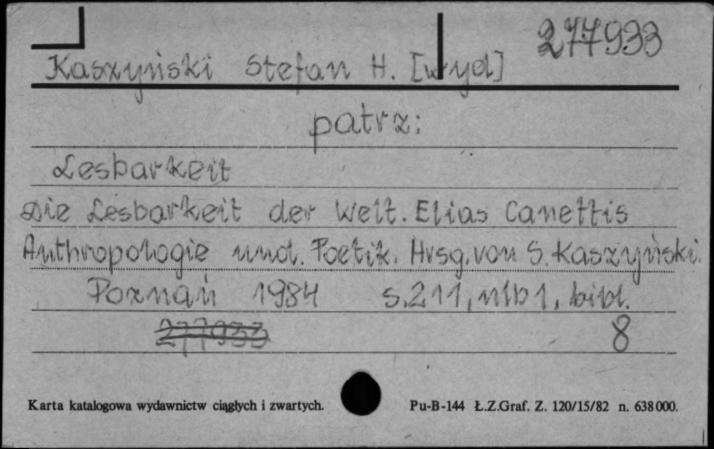 277933
Kaszyński Stefan H. [wyd]
patrz:
Lesbarkeit
Die Lesbarkeit der Welt. Elias Canettis
Anthropologie und. Poetik. Hrsg. von S. Kaszyński.
Poznań 1984 s. 211, nlb 1, bibl.
277933 8
Karta katalogowa wydawnictw ciągłych i zwartych. Pu-B-144 Ł.Z.Graf. Z. 120/15/82 n. 638000.